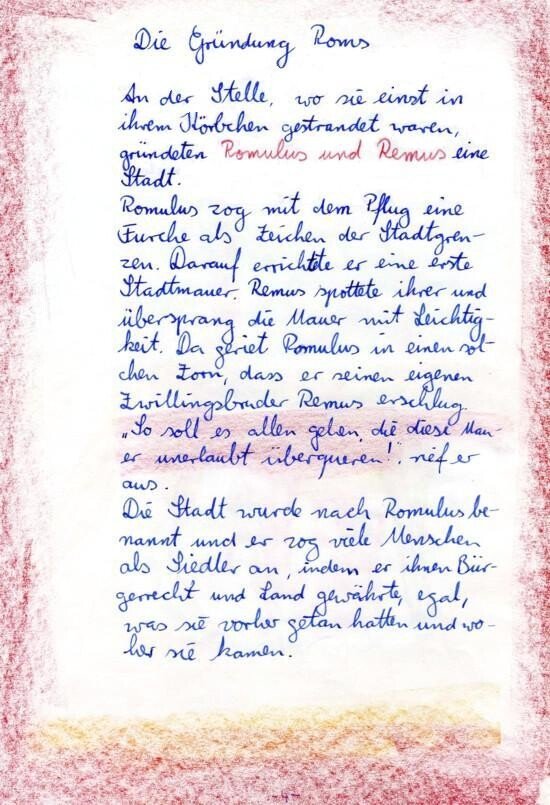 Die Gründung Roms
An der Stelle, wo sie einst in
ihrem Körbchen gestrandet waren,
gründeten Romulus und Remus eine
Stadt.
Romulus zog mit dem Pflug eine
Furche als Zeichen der Stadtgren-
zen. Darauf errichtete er eine erste
Stadtmauer. Remus spottete ihrer und
übersprang die Mauer mit Leichtig-
keit. Da geriet Romulus in einen sol-
chen Zorn, dass er seinen eigenen
Zwillingsbruder Remus erschlug.
„So soll es allen gehen, die diese Mau-
er unerlaubt überqueren!", rief er
aus.
Die Stadt wurde nach Romulus be-
nannt und er zog viele Menschen
als Siedler an, indem er ihnen Bür-
gerrecht und Land gewährte, egal,
was sie vorher getan hatten und wo-
her sie kamen.
-4-